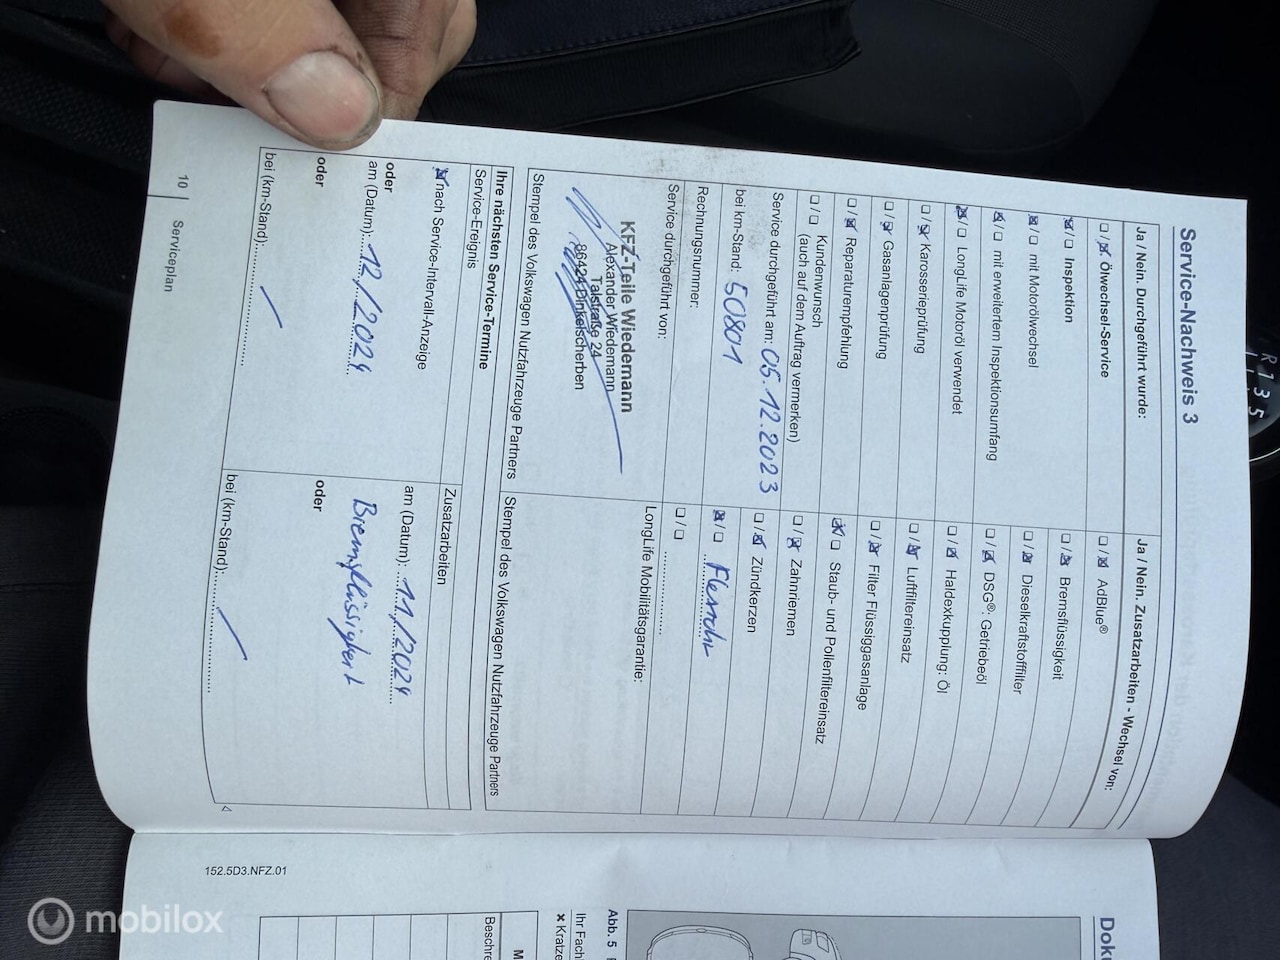 Service-Nachweis 3
Ja / Nein. Durchgeführt wurde:
Ölwechsel-Service
Inspektion
mit Motorölwechsel
mit erweitertem Inspektionsumfang
LongLife Motoröl verwendet
Karosserieprüfung
Gasanlagenprüfung
Reparaturempfehlung
Kundenwunsch
(auch auf dem Auftrag vermerken)
Service durchgeführt am: 05.12.2023
bei km-Stand: 50801
Rechnungsnummer:
Service durchgeführt von:
KFZ-Teile Wiedemann
Alexander Wiedemann
Talstraße 24
86424 Dinkelscherben
Stempel des Volkswagen Nutzfahrzeuge Partners
Ja / Nein. Zusatzarbeiten - Wechsel von:
AdBlue®
Bremsflüssigkeit
Dieselkraftstofffilter
DSG®: Getriebeöl
Haldexkupplung: Öl
Luftfiltereinsatz
Filter Flüssiggasanlage
Staub- und Pollenfiltereinsatz
Zahnriemen
Zündkerzen
Flexrohr
LongLife Mobilitätsgarantie:
Stempel des Volkswagen Nutzfahrzeuge Partners
Ihre nächsten Service-Termine
Service-Ereignis
nach Service-Intervall-Anzeige
oder
am (Datum): 12/2024
oder
bei (km-Stand): /
Zusatzarbeiten
am (Datum): 11/2024
Bremsflüssigkeit
oder
bei (km-Stand): /
10 Serviceplan
152.5D3.NFZ.01
Abb. 5
Kratze
Beschre
R 1 3 5
mobilox